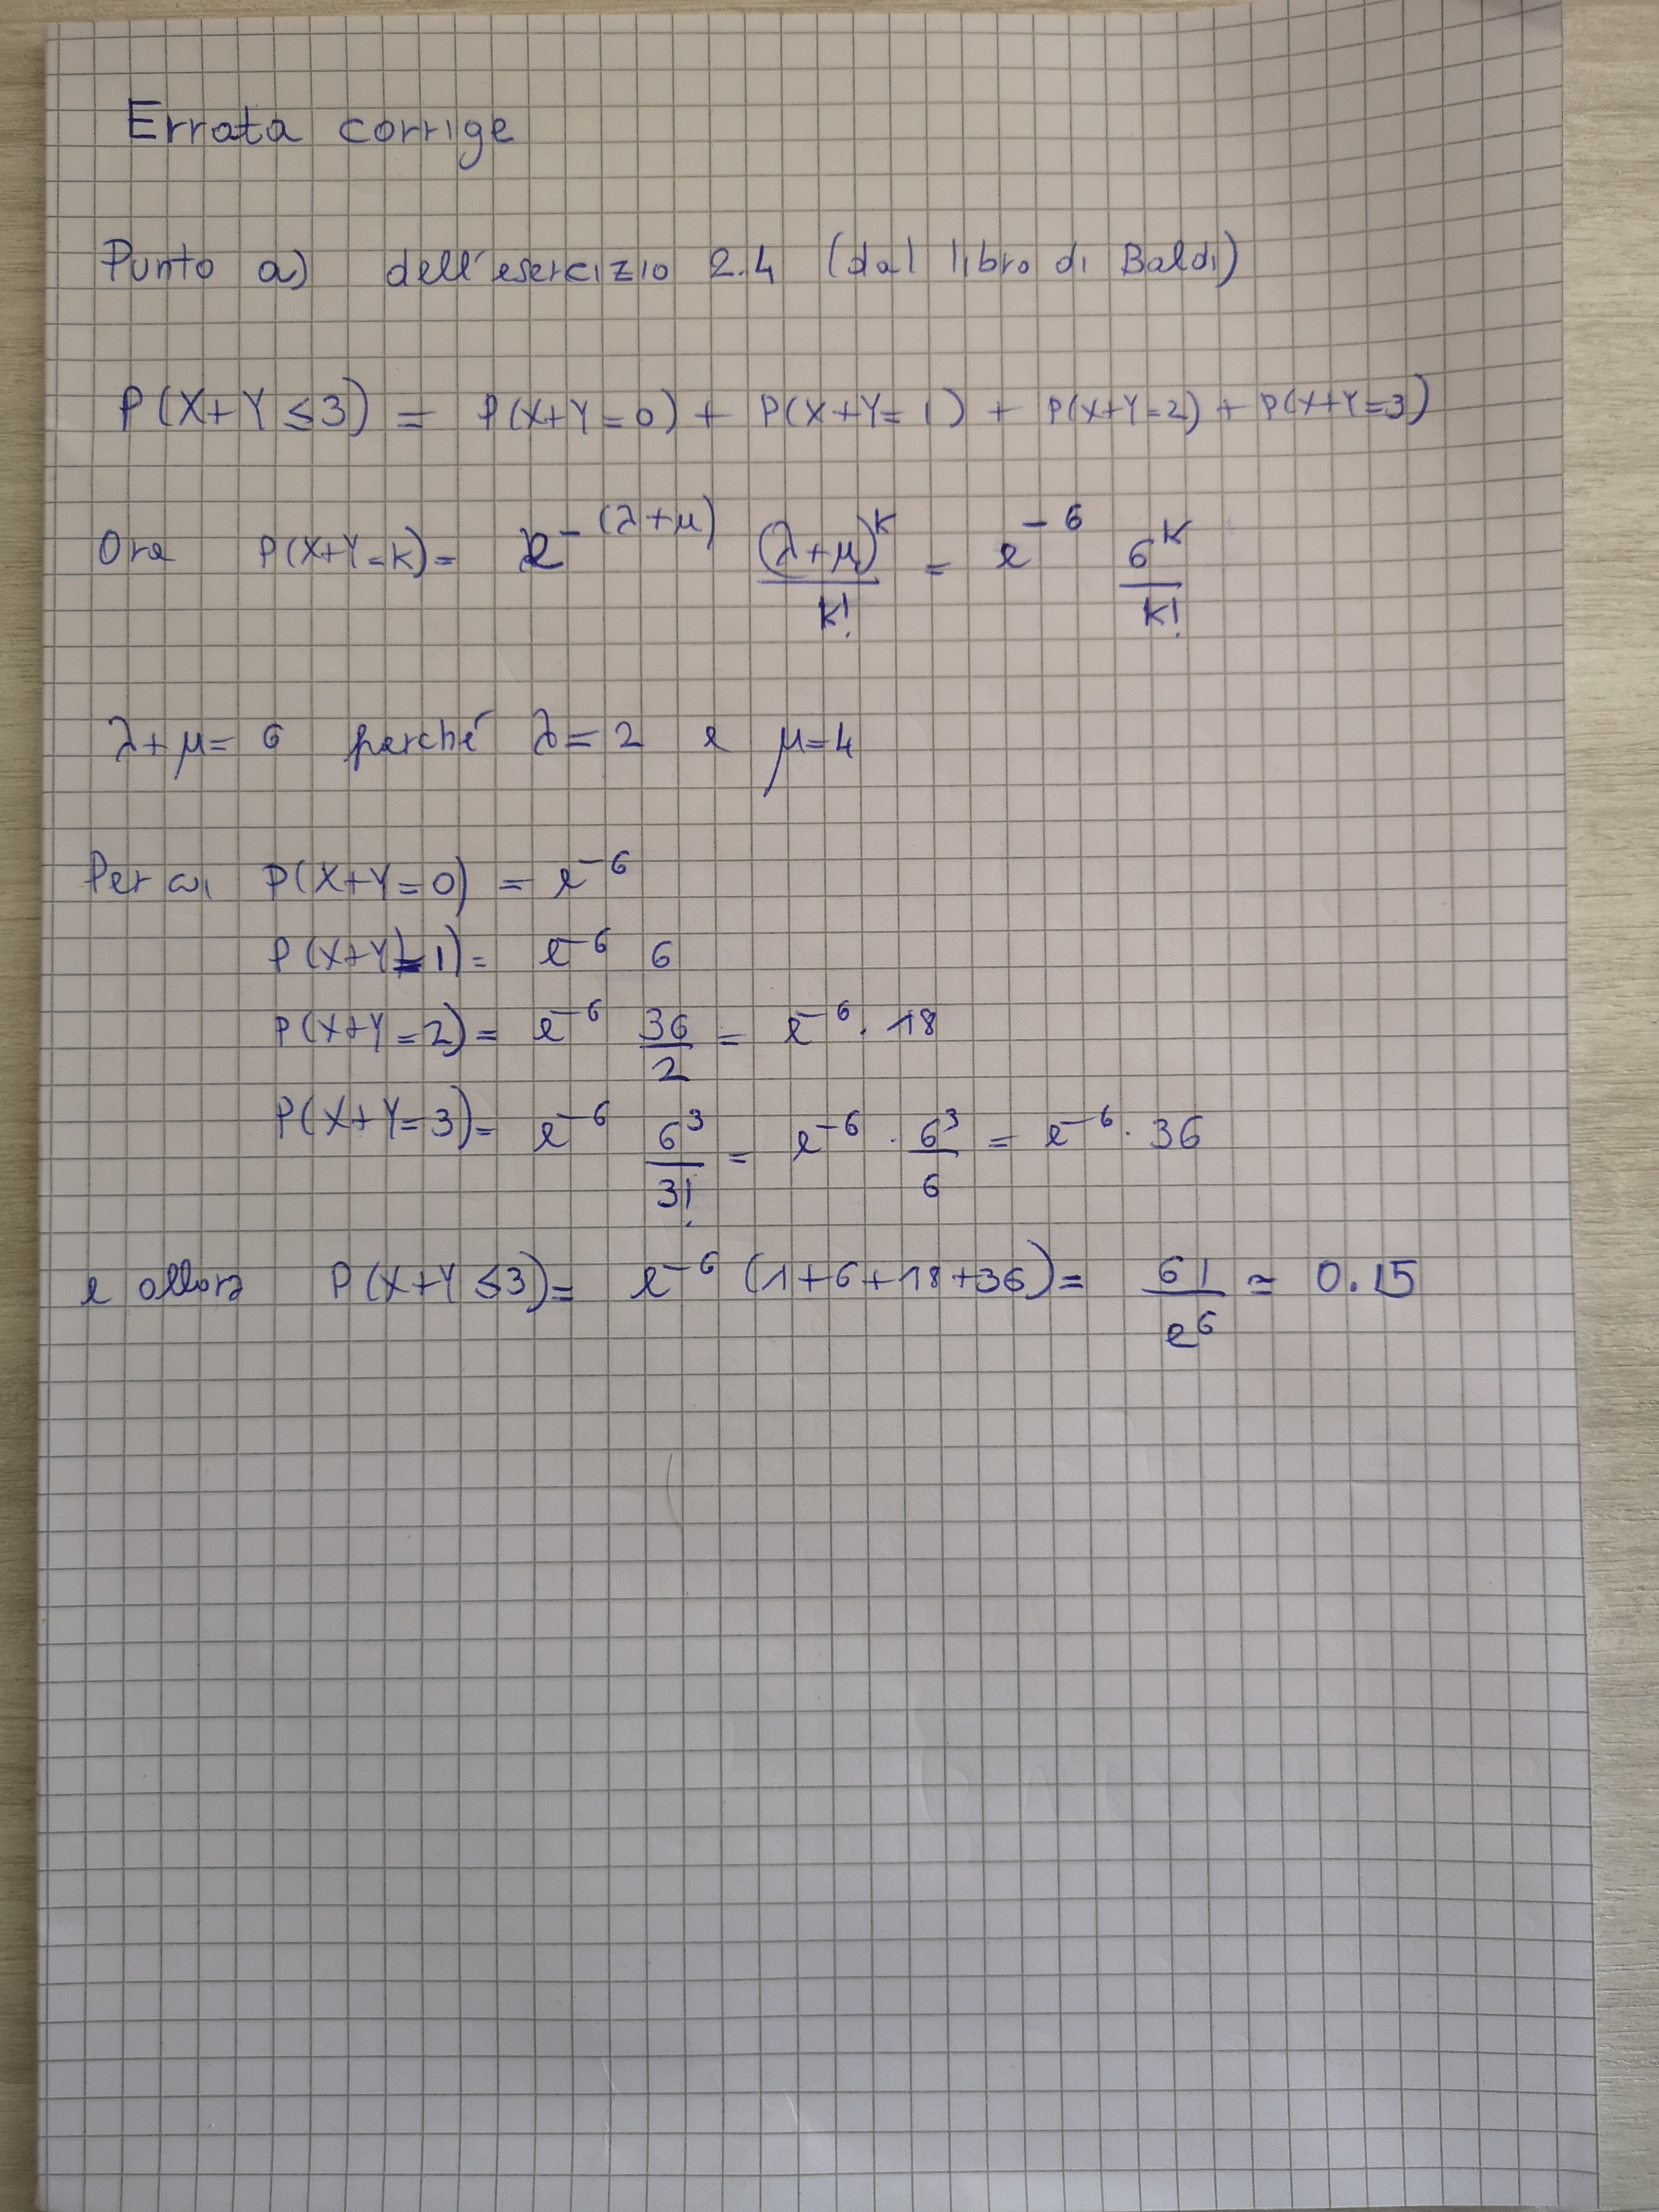 Errata corrige
Punto a) dell'esercizio 2.4 (dal libro di Baldi)
P(X+Y≤3) = P(X+Y=0) + P(X+Y=1) + P(X+Y=2) + P(X+Y=3)
Ora P(X+Y=k) = e^-(λ+μ) (λ+μ)^k/k! = e^-6 6^k/k!
λ+μ = 6 perché λ=2 e μ=4
Per cui P(X+Y=0) = e^-6
P(X+Y=1) = e^-6 6
P(X+Y=2) = e^-6 36/2 = e^-6 · 18
P(X+Y=3) = e^-6 6^3/3! = e^-6 · 6^3/6 = e^-6 · 36
e allora P(X+Y≤3) = e^-6 (1+6+18+36) = 61/e^6 ≃ 0.15